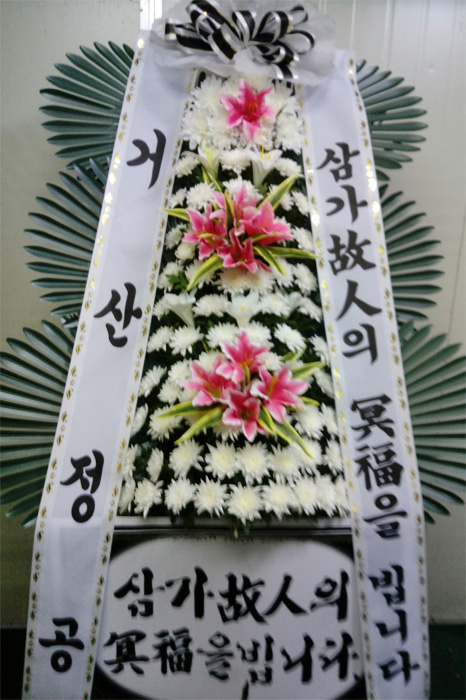 거산정공
삼가故人의 冥福을 빕니다
삼가故人의
冥福을빕니다